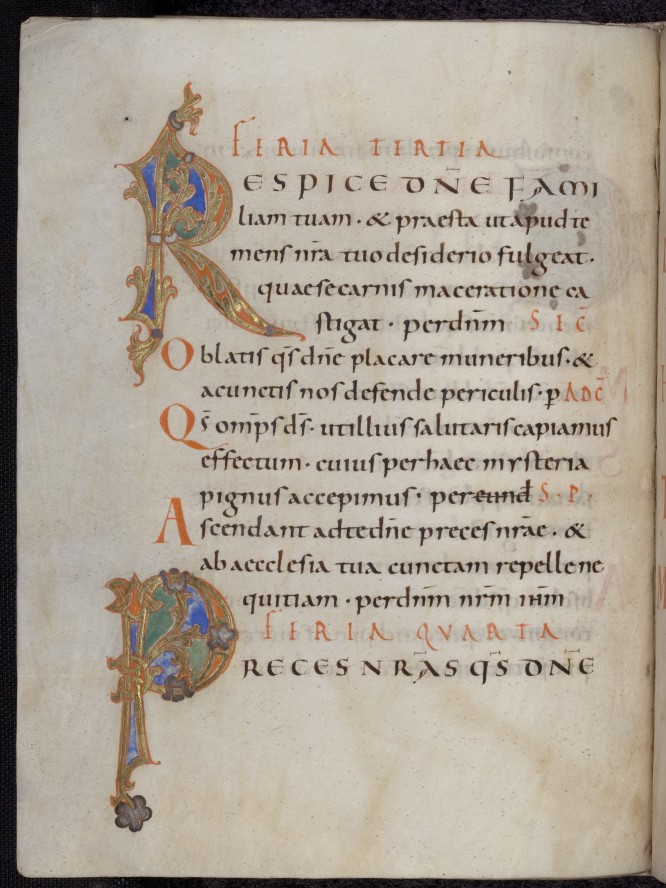 FERIA TERTIA
RESPICE DN̄E FAMI
liam tuam · & praesta ut apud te
mens nr̄a tuo desiderio fulgeat ·
quae se carnis maceratione ca
stigat · per dn̄m SIC̄
Oblatis qs̄ dn̄e placare muneribus · &
a cunctis nos defende periculis · p̄ ADC̄
Qs̄ omp̄s ds̄ · ut illius salutaris capiamus
effectum · cuius per haec mysteria
pignus accepimus · per eund̄ S · P ·
Ascendant ad te dn̄e preces nr̄ae · &
ab aecclesia tua cunctam repelle ne
quitiam · per dn̄m nr̄m ih̄m
FERIA QVARTA
PRECES NR̄AS QS̄ DN̄E